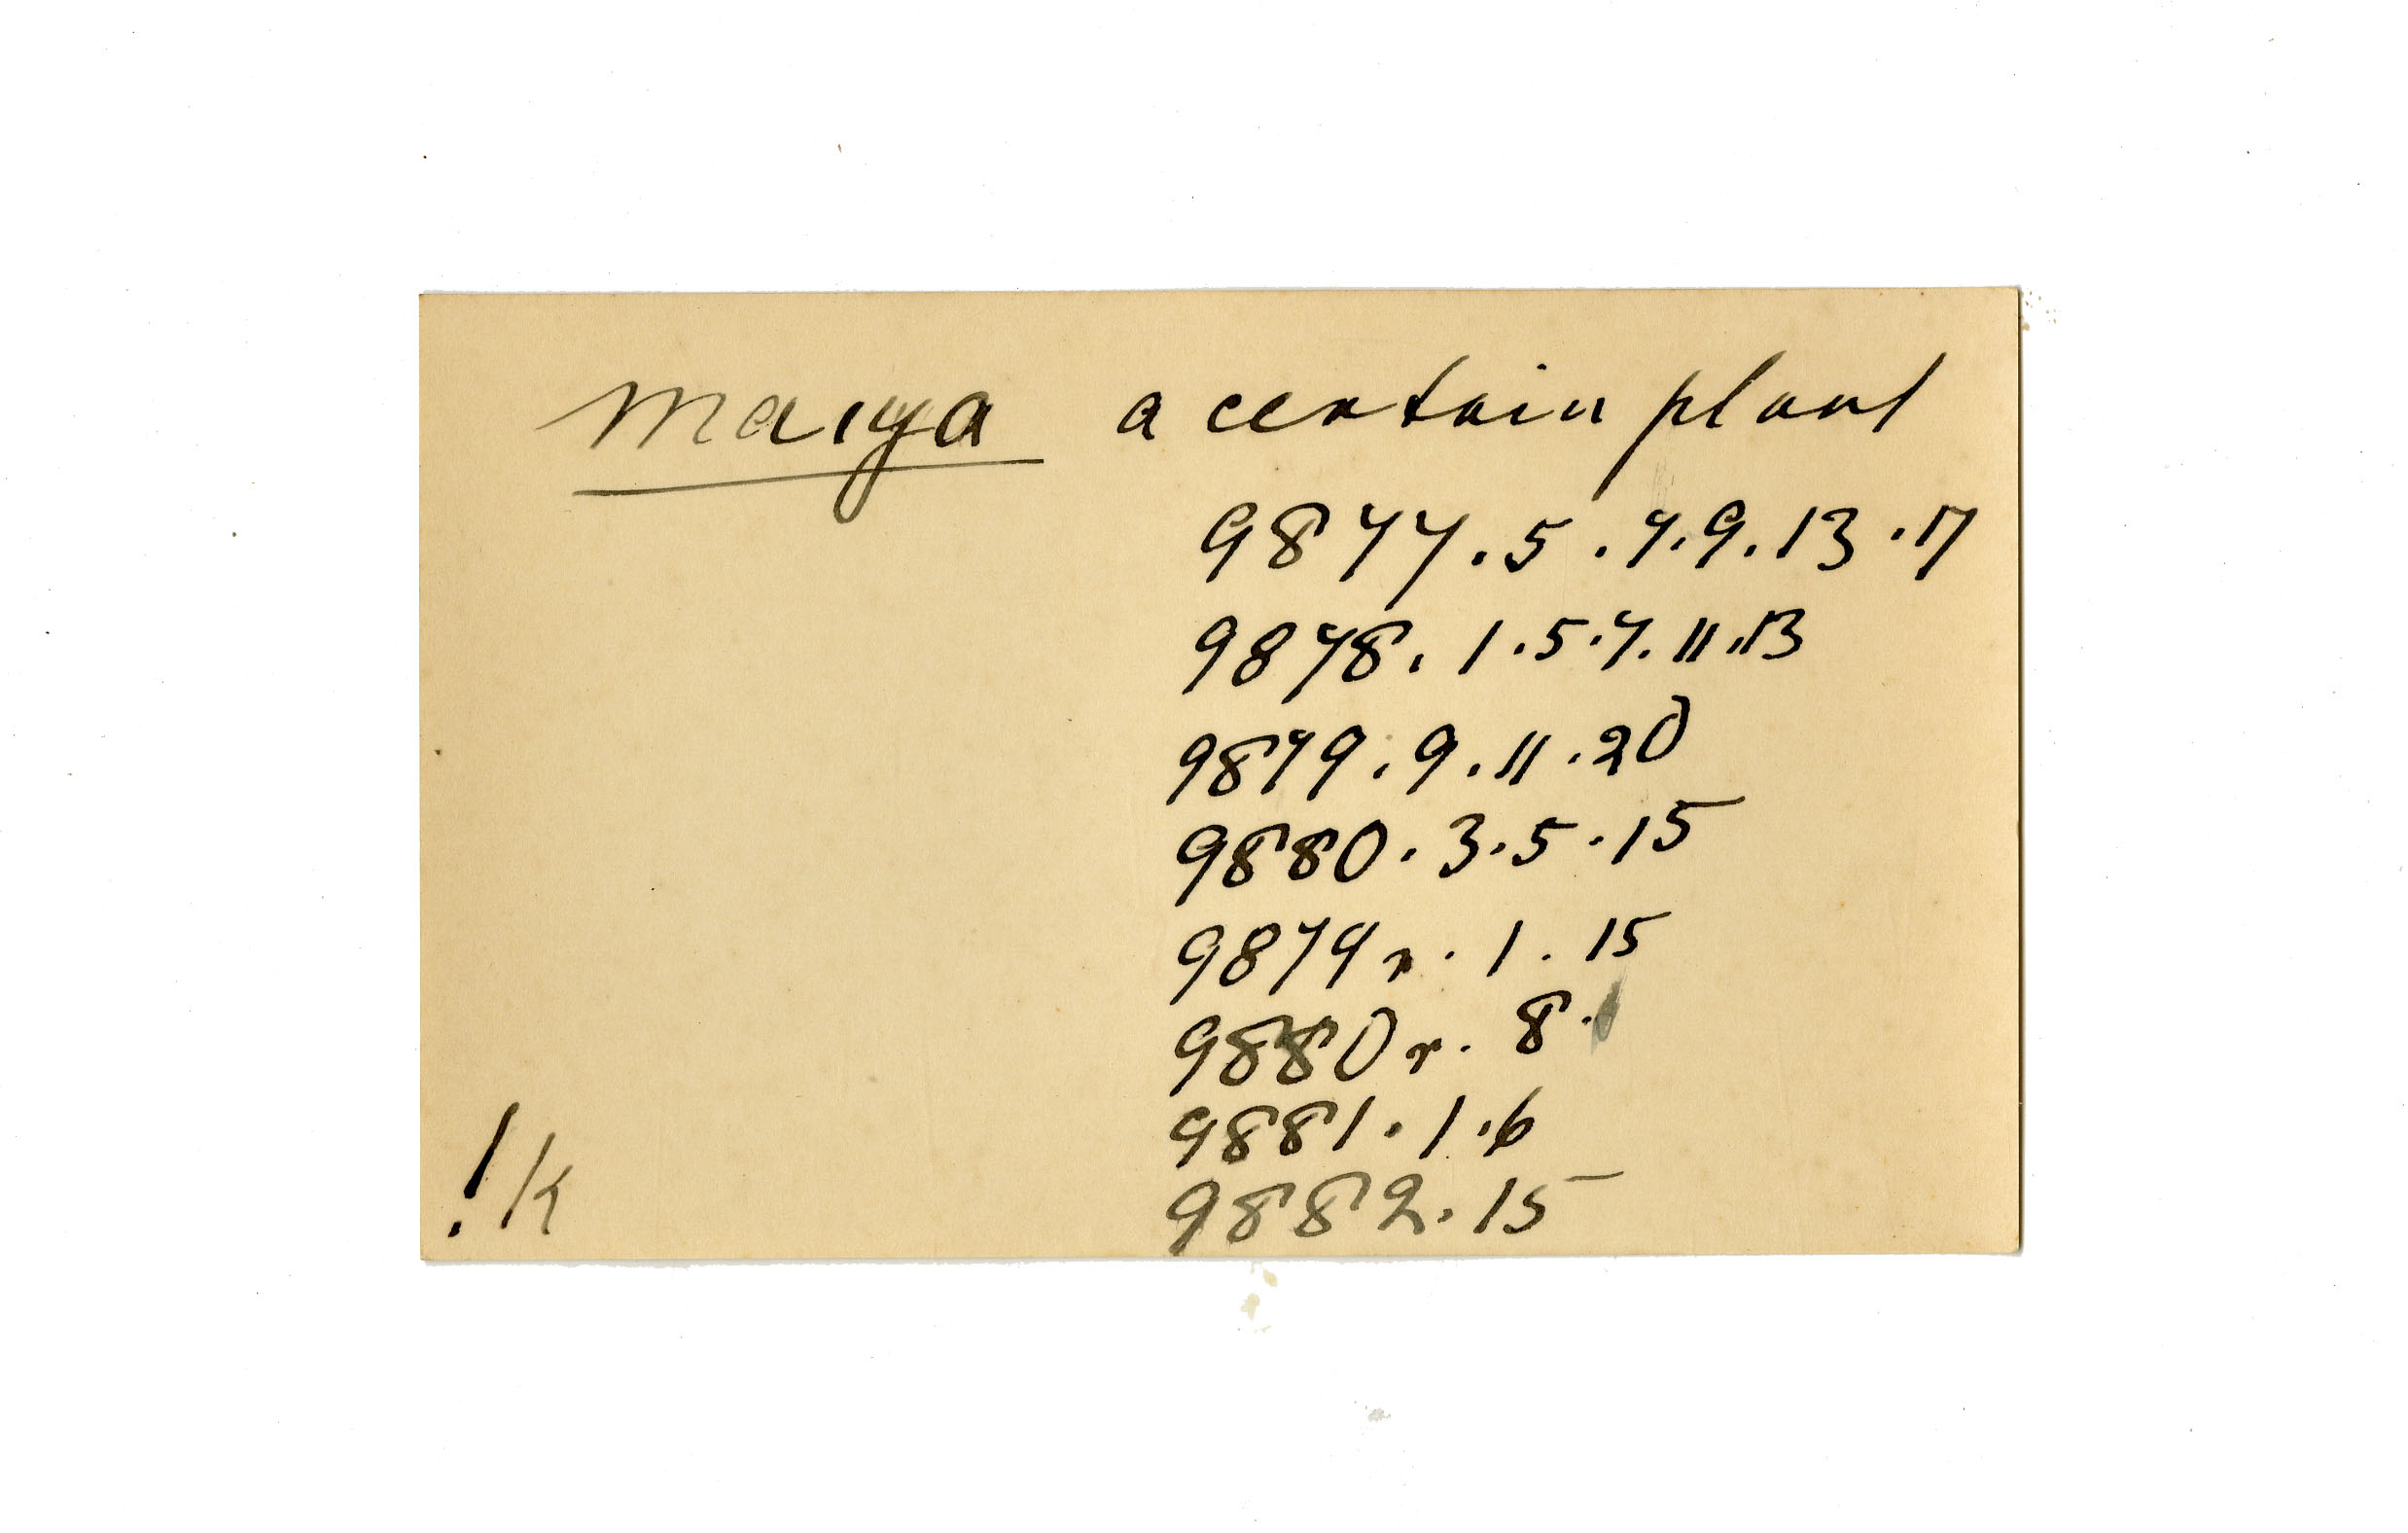 maiya a certain plant
9877.5.7.9.13.17
9878.1.5.7.11.13
9879.9.11.20
9880.3.5.15
9879r.1.15
9880r.8.
9881.1.6
9882.15
!k